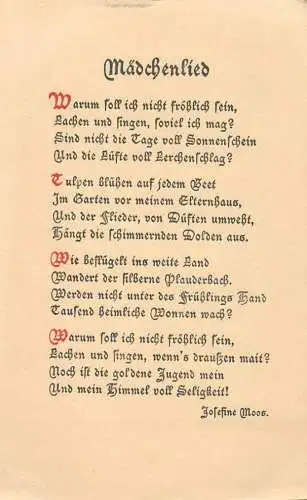 Mädchenlied
Warum soll ich nicht fröhlich sein,
Lachen und singen, soviel ich mag?
Sind nicht die Tage voll Sonnenschein
Und die Lüfte voll Lerchenschlag?
Tulpen blühen auf jedem Beet
Im Garten vor meinem Elternhaus,
Und der Flieder, von Düften umweht,
Hängt die schimmernden Dolden aus.
Wie beflügelt ins weite Land
Wandert der silberne Plauderbach.
Werden nicht unter des Frühlings Hand
Tausend heimliche Wonnen wach?
Warum soll ich nicht fröhlich sein,
Lachen und singen, wenn's draußen mait?
Noch ist die goldene Jugend mein
Und mein Himmel voll Seligkeit!
Josefine Moos.